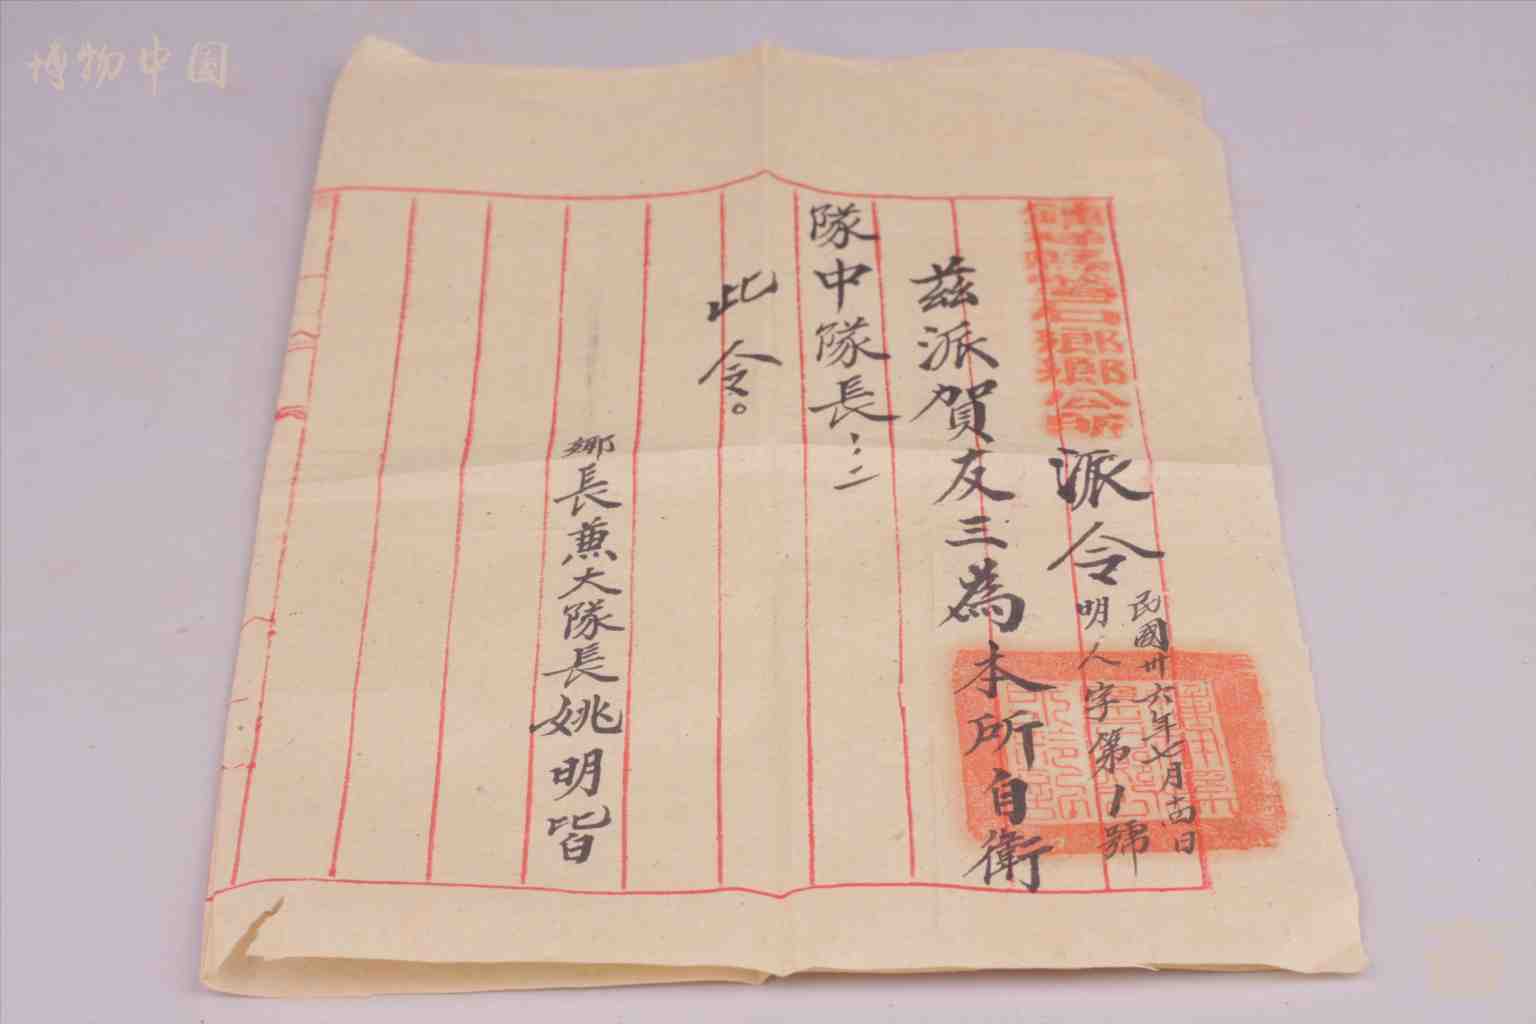 博物中国
鄉鄉公所派令
民國卅六年七月十四日
明人字第1號
茲派賀友三為本所自衛
隊中隊長
此令。
鄉長兼大隊長姚明皆